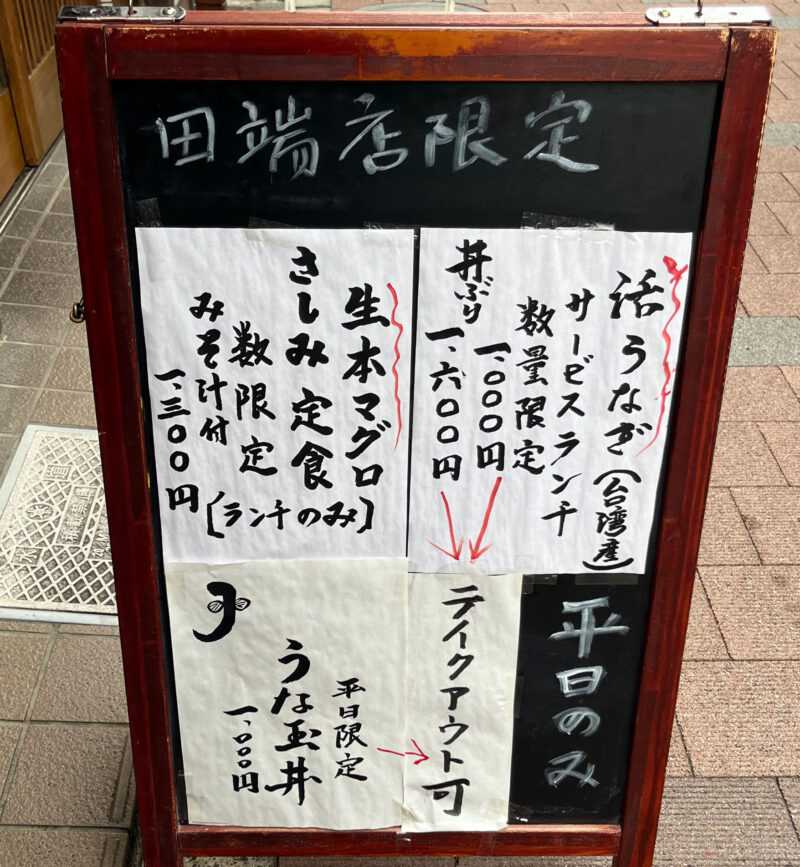 田端店限定
活うなぎ(台湾産)
サービスランチ
数量限定
丼ぶり
一、〇〇〇円
一、六〇〇円
生本マグロ
さしみ定食
[ランチのみ]
数限定
みそ汁付
一、三〇〇円
平日のみ
テイクアウト可
平日限定
うな玉丼
一、〇〇〇円